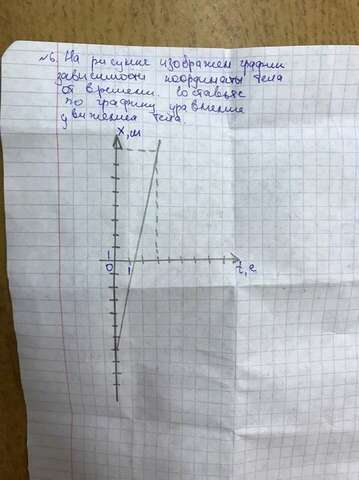 №6. На рисунке изображен график
зависимости координаты тела
от времени. Составьте
по графику уравнение
движения тела.
X, м
1
0 1
t, с